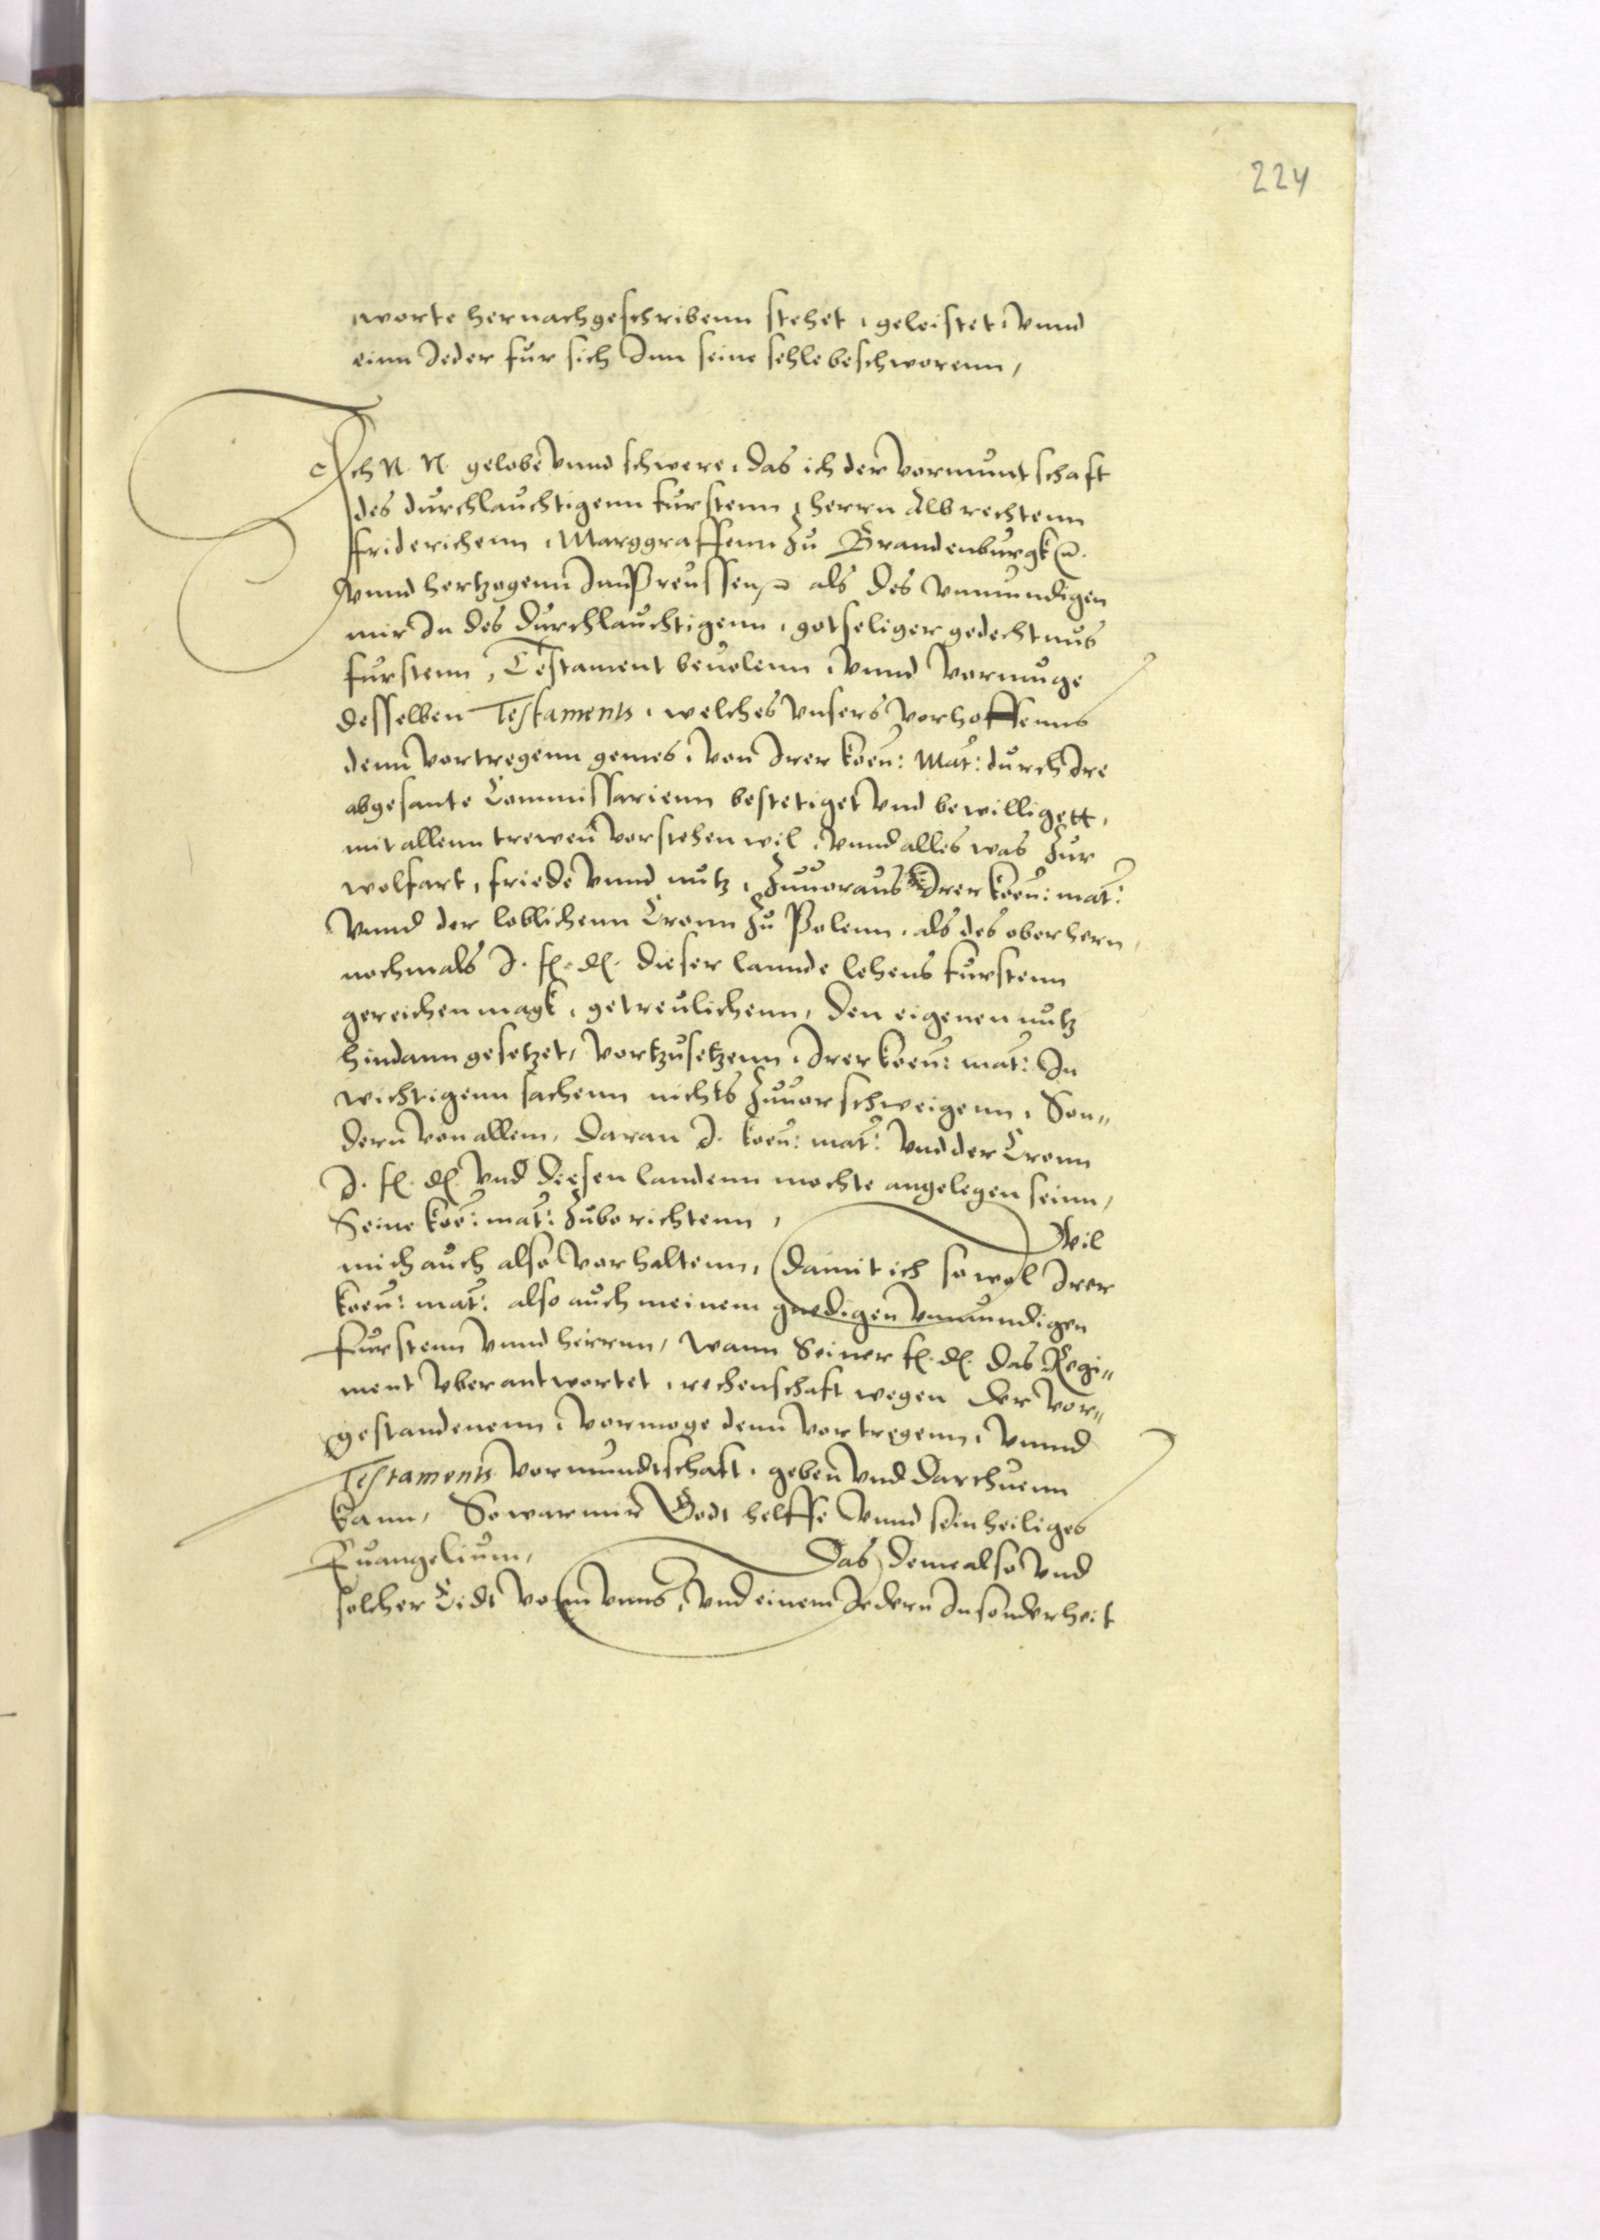 224
worte hernachgeschribenn stehet, geleistet, vnnd
einn Jeder fur sich Jnn seine sehle beschworenn,
Jch N. N. gelobe vnnd schwere, das ich der vormuntschaft
des durchlauchtigenn furstenn, herrn Albrechtenn
friderichenn, Marggraffenn zu Brandenburgk
vnnd hertzogenn Jnn Preussen, als des vnmundigen
mir Jn des durchlauchtigenn, gotseliger gedechtnus
furstenn, Testament beuolenn, vnnd vormuge
desselben Testaments, welches vnsers vorhoffenns
denn vortregenn gemes, von Jrer koen: Mat: durch Jre
abgesante Commissarienn bestetiget vnd bewilligett,
mit allenn trewen vorstehen wil, vnnd alles was zur
wolfart, friede vnnd nutz, zuuoraus Jrer koen: mat:
vnnd der loblichenn Cronn zu Polenn, als des oberhern,
nochmals J. f. d. dieser lannde lehens furstenn
gereichen magk, getreulichenn, den eigenen nutz
hindann gesetzet, vortzusetzenn, Jrer koen: mat: Jn
wichtigenn sachenn nichts zuuorschweigenn, Son„
dern von allem, daran J. koen: mat: vnd der Cronn
J. f. d. vnd diesen landenn mochte angelegen seinn,
Seine koe: mat: zuberichtenn, Wil
mich auch also vorhaltenn, damit ich so wol Jrer
koen: mat: also auch meinem gnedigen vnmundigen
furstenn vnnd herrnn, wann Seiner f. d. das Regi„
ment vberantwortet, rechenschaft wegen der vor„
gestandenenn, vormoge denn vortregenn, vnnd
Testaments vormundtschaft, geben vnd darthuenn
kann, So war mir Godt helffe vnnd sein heiliges
Euangelium, Das deme also vnd
solcher Eidt vonn vnns, vnd einem Jedern Jnsonderheit